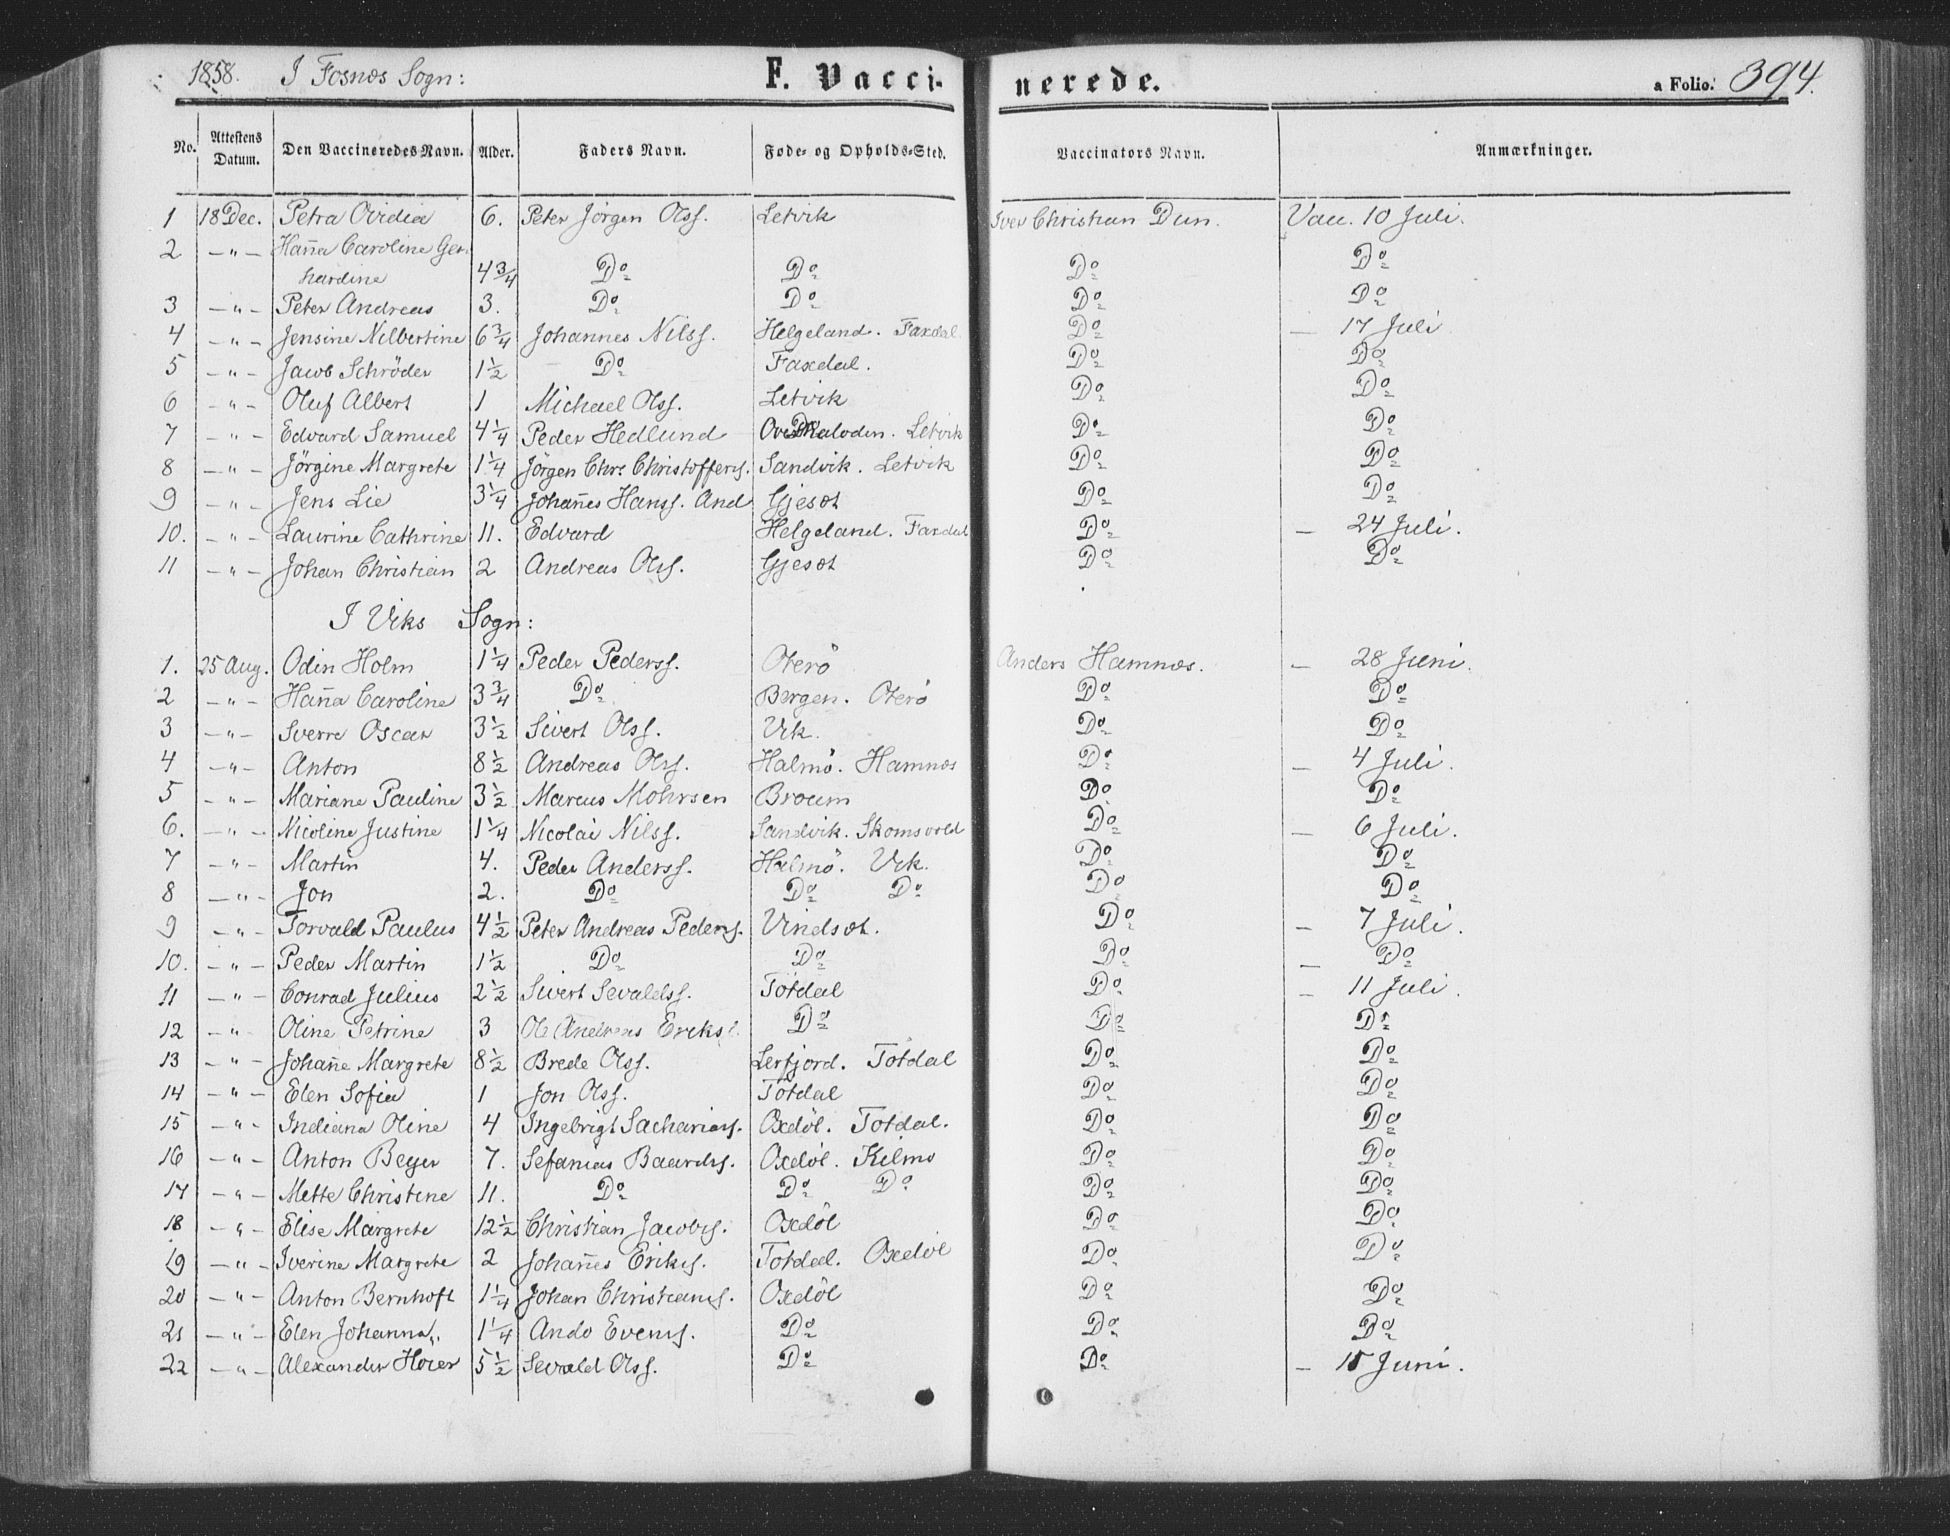 1858. I Fosnæs Sogn: F. Vaccinerede. a Folio. 394.
No. Attestens Datum. Den Vaccineredes Navn. Alder. Faders Navn. Føde- og Opholds-Sted. Vaccinators Navn. Anmærkninger.
1 18 Dec. Petra Ovidia 6. Peter Jörgen Olss. Letvik Iver Christian Dun. Vacc. 10 Juli.
2 — " — Han̄a Caroline Ger-
hardine 4 3/4 Do Do Do Do
3 — " — Peter Andreas 3. Do Do Do Do
4 — " — Jensine Nilbertine 6 3/4 Johannes Nilss. Helgeland. Faxdal Do — 17 Juli
5 — " — Jacob Schröder 1 1/2 Do Faxdal. Do Do
6 — " — Oluf Albert 1 Michael Olss. Letvik Do Do
7 — " — Edvard Samuel 4 1/4 Peder Hedlund Letvik Do Do
8 — " — Jörgine Margrete 1 1/4 Jörgen Chr. Christoffers. Sandvik. Letvik Do Do
9 — " — Jens Lie 3 1/4 Johan̄es Hanss. And Gjesøt Do Do
10. — " — Laurine Cathrine 11. Edvard Helgeland. Faxdal Do — 24 Juli.
11 — " — Johan Christian 2 Andreas Olss. Gjesøt Do Do
I Viks Sogn:
1. 25 Aug. Odin Holm 1 1/4 Peder Pederss. Oterö Anders Hamnøs. — 28 Juni.
2 — " — Han̄a Caroline 3 3/4 Do Bergen. Oterö Do Do
3 — " — Sverre Oscar 3 1/2 Sivert Olss. Vik. Do Do
4 — " — Anton 8 1/2 Andreas Olss. Halmö. Hamnøs Do — 4 Juli.
5 — " — Mariane Pauline 3 1/2 Marcus Mohrsen Broum Do Do
6. — " — Nicoline Justine 1 1/4 Nicolai Nilss. Sandvik. Skomsvold Do — 6 Juli.
7 — " — Martin 4. Peder Anderss. Halmö. Vik. Do Do
8 — " — Jon 2. Do Do Do Do Do
9 — " — Torvald Paulus 4 1/2 Peter Andreas Peders. Vindsøt. Do — 7 Juli.
10. — " — Peder Martin 1 1/2 Do Do Do — Do
11 — " — Conrad Julius 2 1/2 Sivert Sevaldss. Totdal Do — 11 Juli.
12 — " — Oline Petrine 3 Ole Andreas Eriks. Do Do Do
13 — " — Johan̄e Margrete 8 1/2 Brede Olss. Lerfjord. Totdal Do Do
14 — " — Elen Sofia 1 Jon Olss. Totdal Do Do
15 — " — Indiana Oline 4 Ingebrigt Sacharias. Oxdöl. Totdal. Do Do
16 — " — Anton Beyer 7. Sefanias Baards. Oxdöl. Kilmo Do Do
17 — " — Mette Christine 11. Do Do Do Do Do
18 — " — Elise Margrete 12 1/2 Christian Jacobs. Oxdöl Do Do
19 — " — Iverine Margrete 2 Johan̄es Eriks. Totdal. Oxdöl Do Do
20 — " — Anton Bernhoft 1 1/4 Johan Christians. Oxdöl Do Do
21 — " — Elen Johanna 1 1/4 Ando Evens. Do Do Do
22 — " — Alexander Hoier 5 1/2 Sevald Olss. Do Do — 15 Juni.